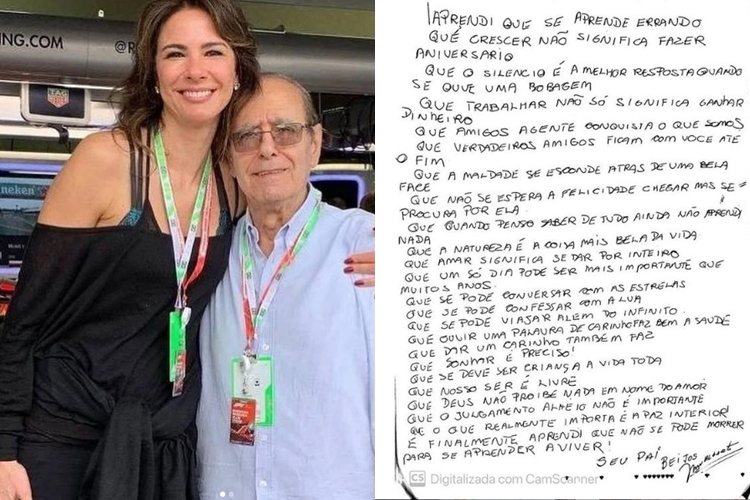 NG.COM
@R
TAG
HEUER
neken
F1
APRENDI QUE SE APRENDE ERRANDO
QUE CRESCER NÃO SIGNIFICA FAZER
ANIVERSARIO
QUE O SILENCIO É A MELHOR RESPOSTA QUANDO
SE OUVE UMA BOBAGEM
QUE TRABALHAR NÃO SÓ SIGNIFICA GANHAR
DINHEIRO
QUE AMIGOS AGENTE CONQUISTA O QUE SOMOS
QUE VERDADEIROS AMIGOS FICAM COM VOCE ATE
O FIM
QUE A MALDADE SE ESCONDE ATRAS DE UMA BELA
FACE
QUE NÃO SE ESPERA A FELICIDADE CHEGAR MAS SE
PROCURA POR ELA
QUE QUANDO PENSO SABER DE TUDO AINDA NÃO APRENDI
NADA
QUE A NATUREZA É A COISA MAIS BELA DA VIDA
QUE AMAR SIGNIFICA SE DAR POR INTEIRO
QUE UM SÓ DIA PODE SER MAIS IMPORTANTE QUE
MUITOS ANOS.
QUE SE PODE CONVERSAR COM AS ESTRELAS
QUE SE PODE CONFESSAR COM A LUA
QUE SE PODE VIAJAR ALEM DO INFINITO.
QUE OUVIR UMA PALAURA DE CARINHO FAZ BEM A SAÚDE
QUE DAR UM CARINHO TAMBÉM FAZ
QUE SONHAR É PRECISO!
QUE SE DEVE SER CRIANÇA A VIDA TODA
QUE NOSSO SER É LIVRE
QUE DEUS NÃO PROIBE NADA EM NOME DO AMOR
QUE O JULGAMENTO ALHEIO NÃO É IMPORTANTE
QUE O QUE REALMENTE IMPORTA É A PAZ INTERIOR!
E FINALMENTE APRENDI QUE NÃO SE PODE MORRER
PARA SE APRENDER A VIVER!
SEU PAI BEIJOS
CS Digitalizada com CamScanner